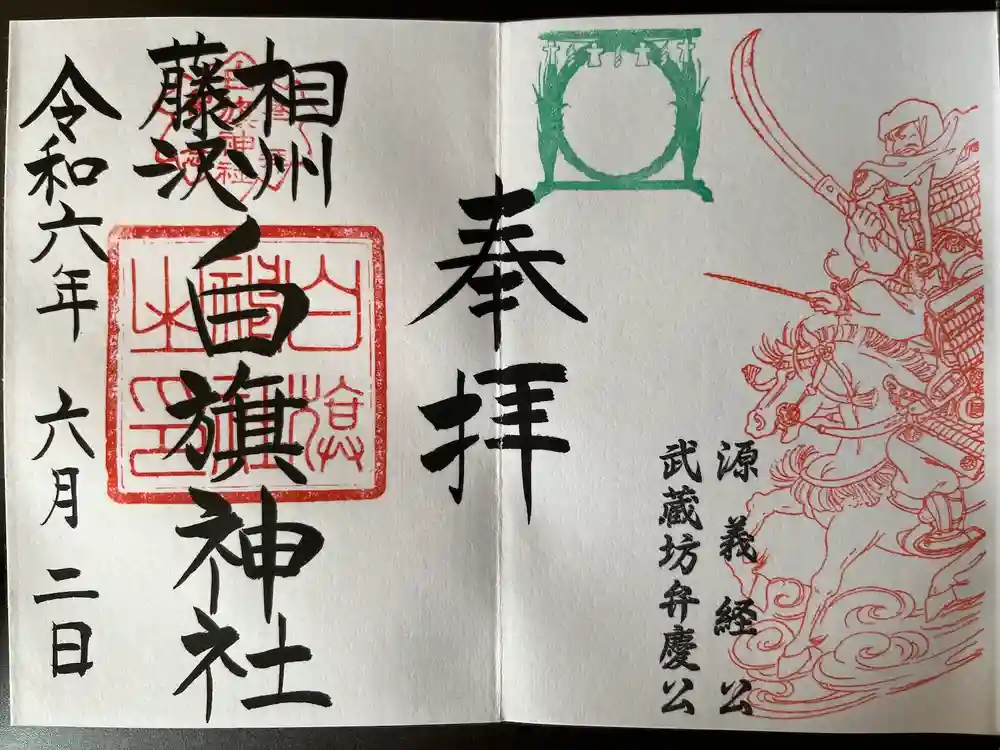 源義経公
武蔵坊弁慶公
奉拝
相州
藤沢ノ白旗神社
白旗
神社
之印
令和六年 六月 二日